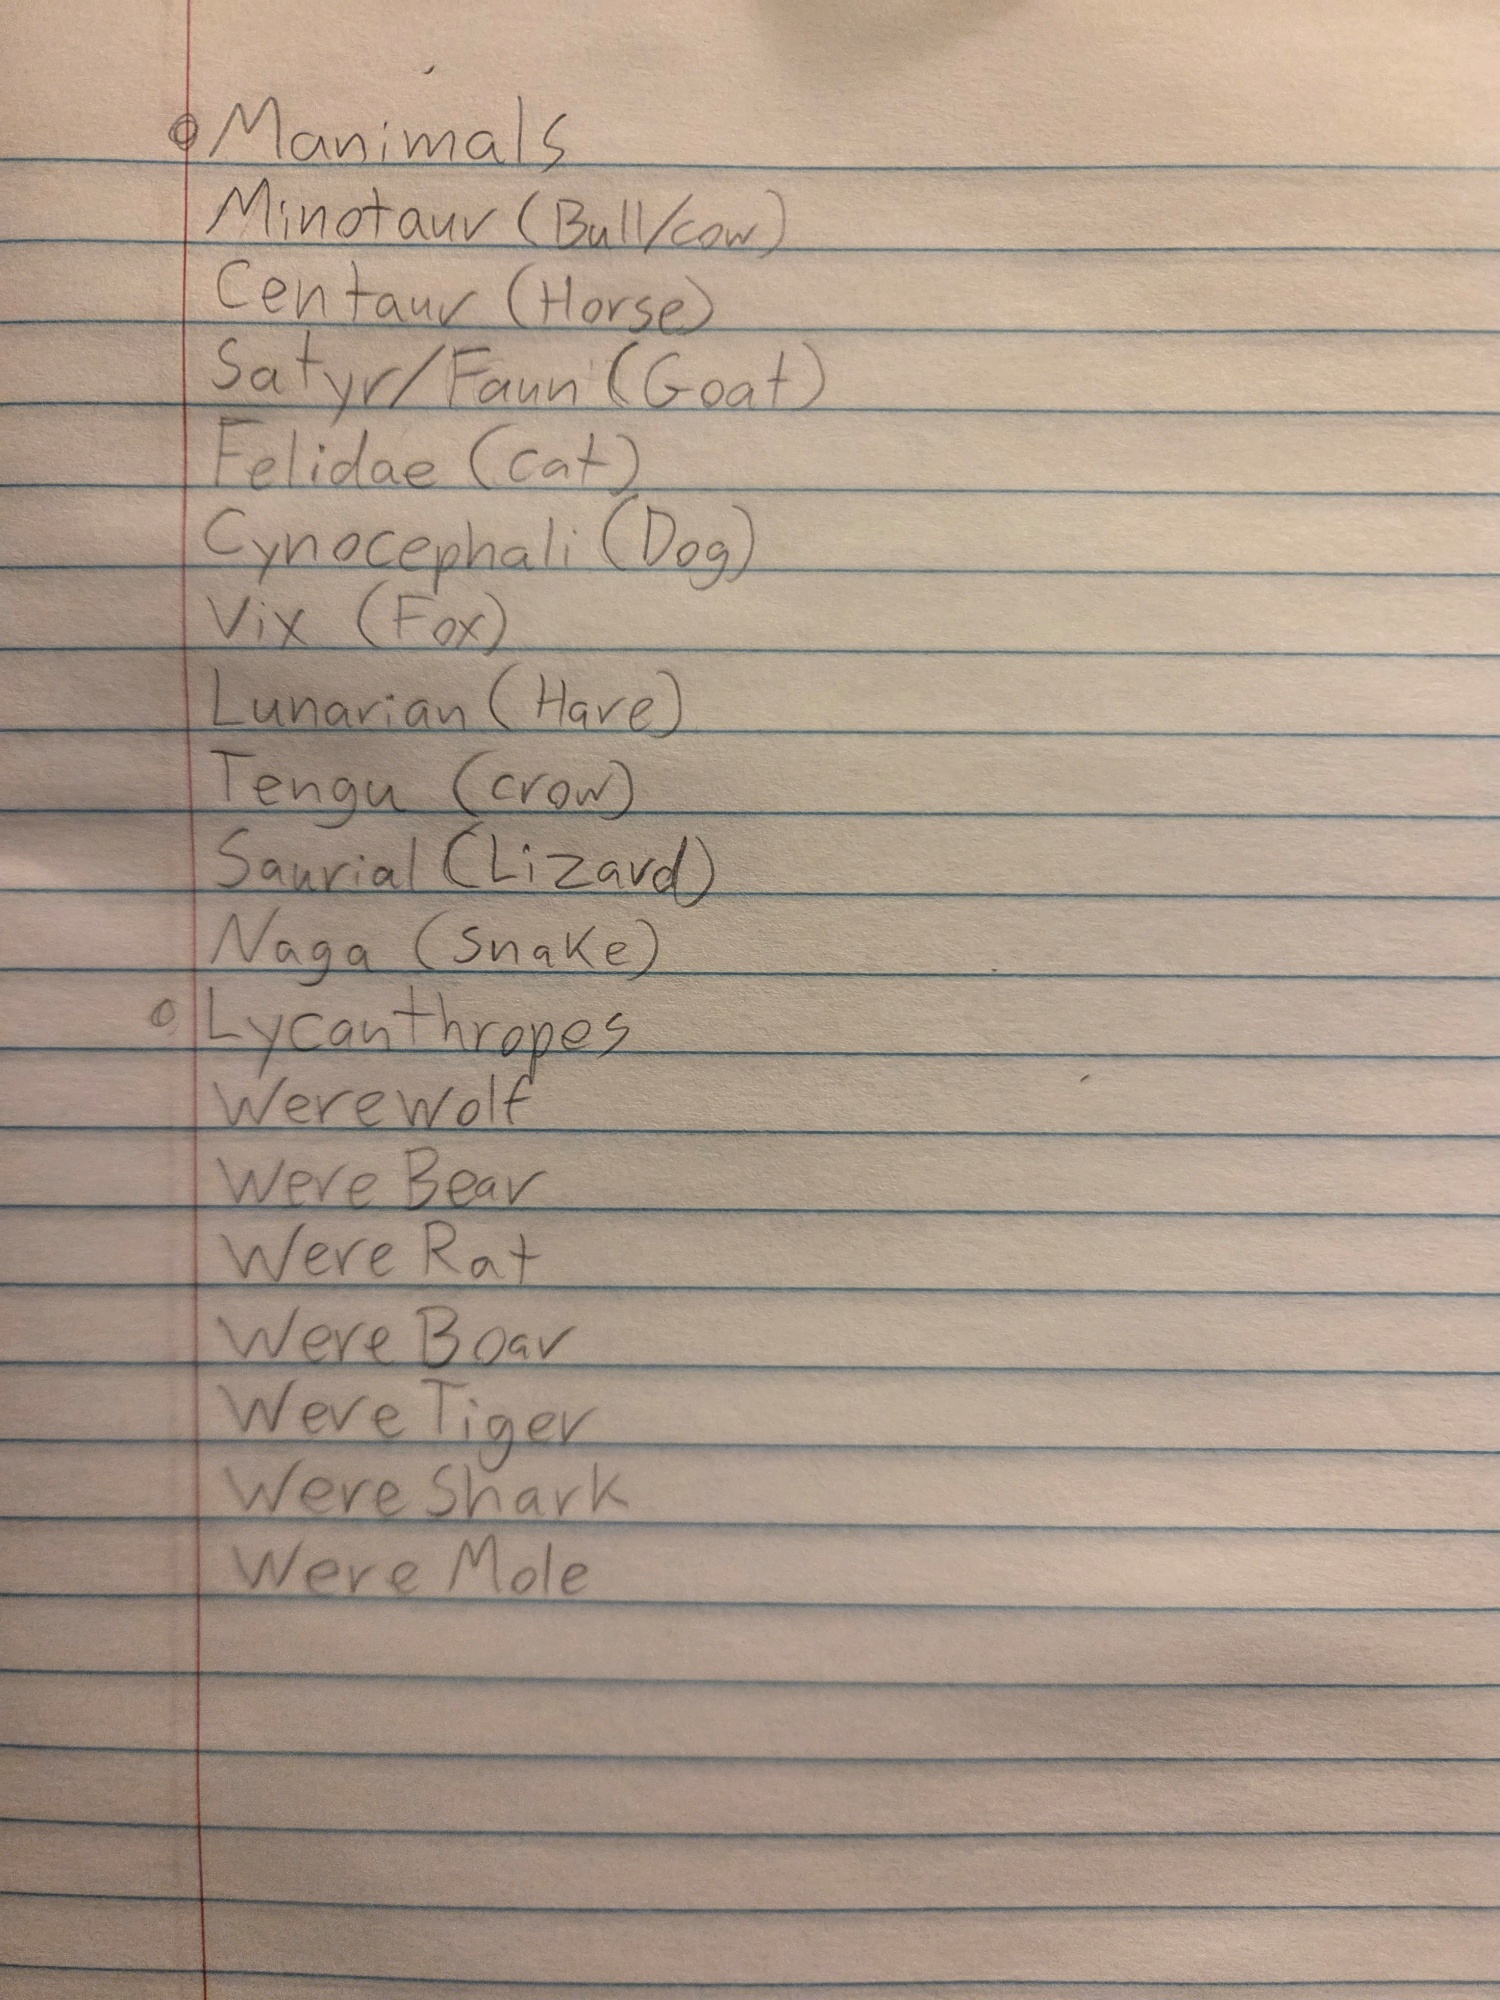 Manimals
Minotaur (Bull/cow)
Centaur (Horse)
Satyr/Faun (Goat)
Felidae (cat)
Cynocephali (Dog)
Vix (Fox)
Lunarian (Hare)
Tengu (crow)
Saurial (Lizard)
Naga (snake)
Lycanthropes
Werewolf
Were Bear
Were Rat
Were Boar
Were Tiger
Were Shark
Were Mole